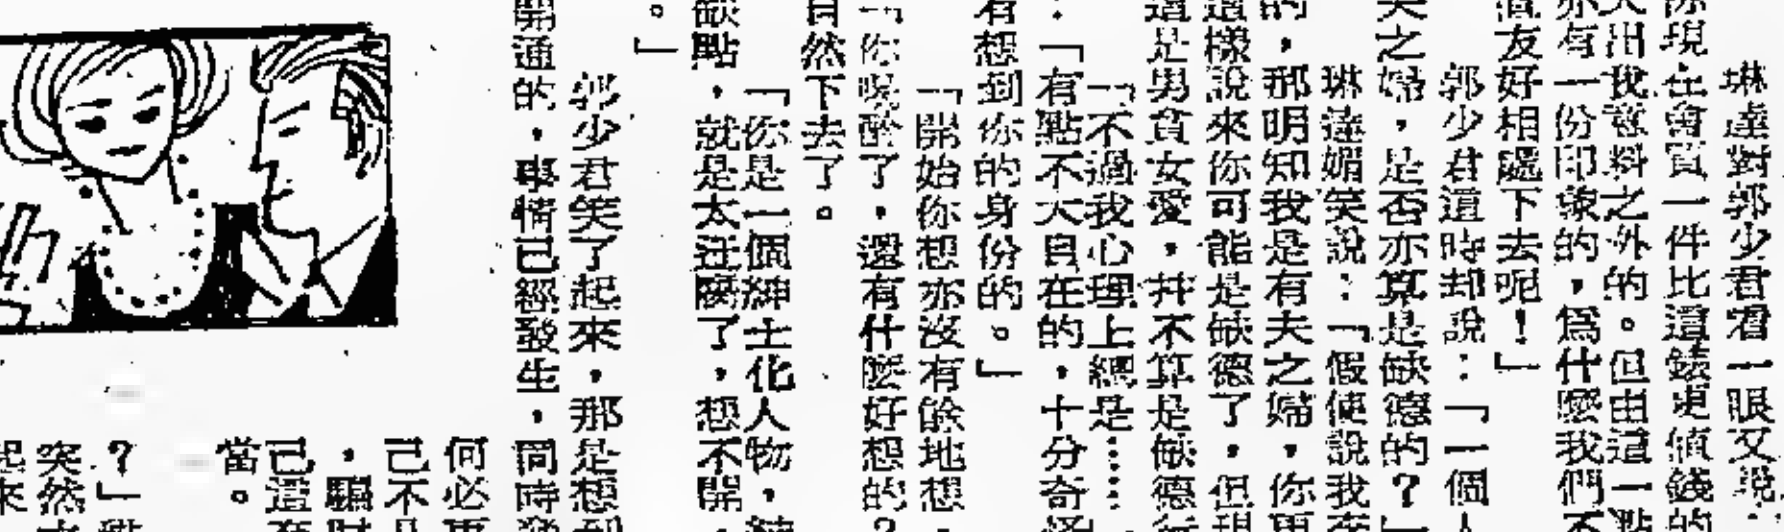 琳達對郭少君看一眼又說：
你現在會買一件比這錶更值錢的
大出我意料之外的。但由這一點
亦有一份印象的，爲什麼我們不
值友好相處下去呢！」
郭少君這時却說：「一個人
夫之婦，是否亦算是缺德的？」
琳達媚笑說：「假使說我在
的，那明知我是有夫之婦，你再
這樣說來你可能是缺德了，但現
這是男貪女愛，幷不算是缺德行
「不過我心理上總是……
：「有點不大自在的，十分奇怪
有想到你的身份的。」
「開始你想亦沒有餘地想，
「你呢醉了，還有什麼好想的？
自然下去了。
「你是一個紳士化人物，
缺點，就是太迂腐了，想不開，
。」
郭少君笑了起來，那是想到
開通的，事情已經發生，同時
何必再
己不是
，騙
己這
當。
？」
突然
起來